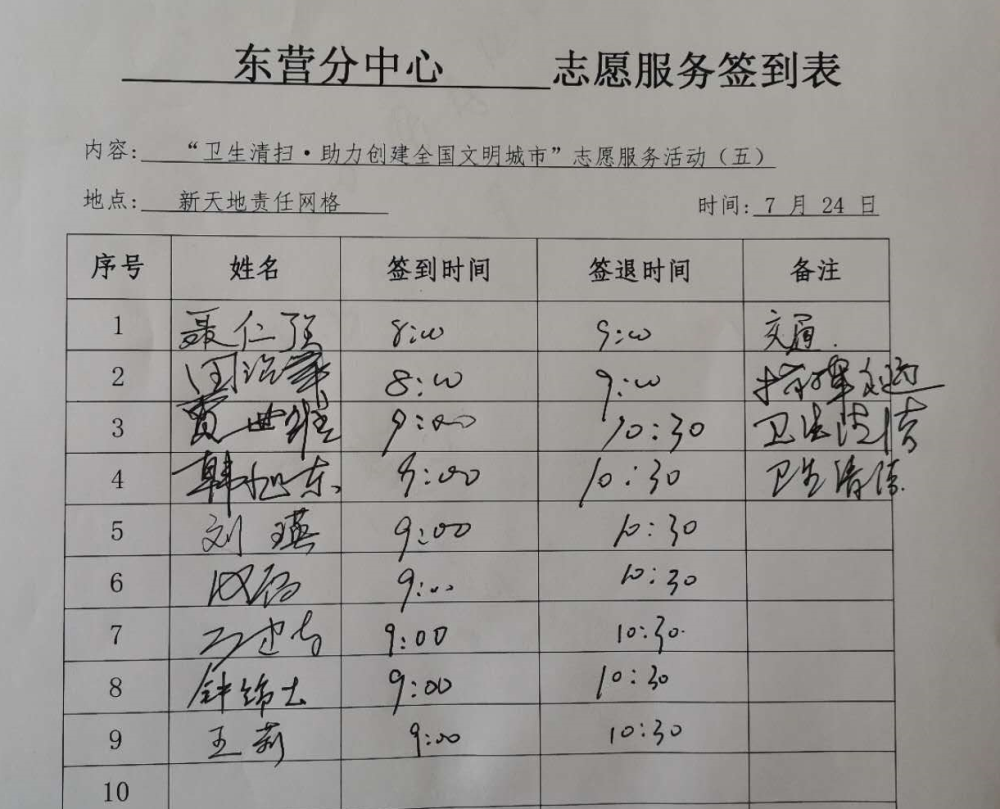 东营分中心 志愿服务签到表
内容: “卫生清扫·助力创建全国文明城市”志愿服务活动（五）
地点: 新天地责任网格 时间: 7 月 24 日
序号 姓名 签到时间 签退时间 备注
1 聂仁强 8:00 9:00 交通.
2 8:00 9:00
3 9:00 10:30 卫生清洁
4 韩旭东 9:00 10:30 卫生清洁.
5 刘瑛 9:00 10:30
6 9:00 10:30
7 9:00 10:30
8 9:00 10:30
9 王莉 9:00 10:30
10